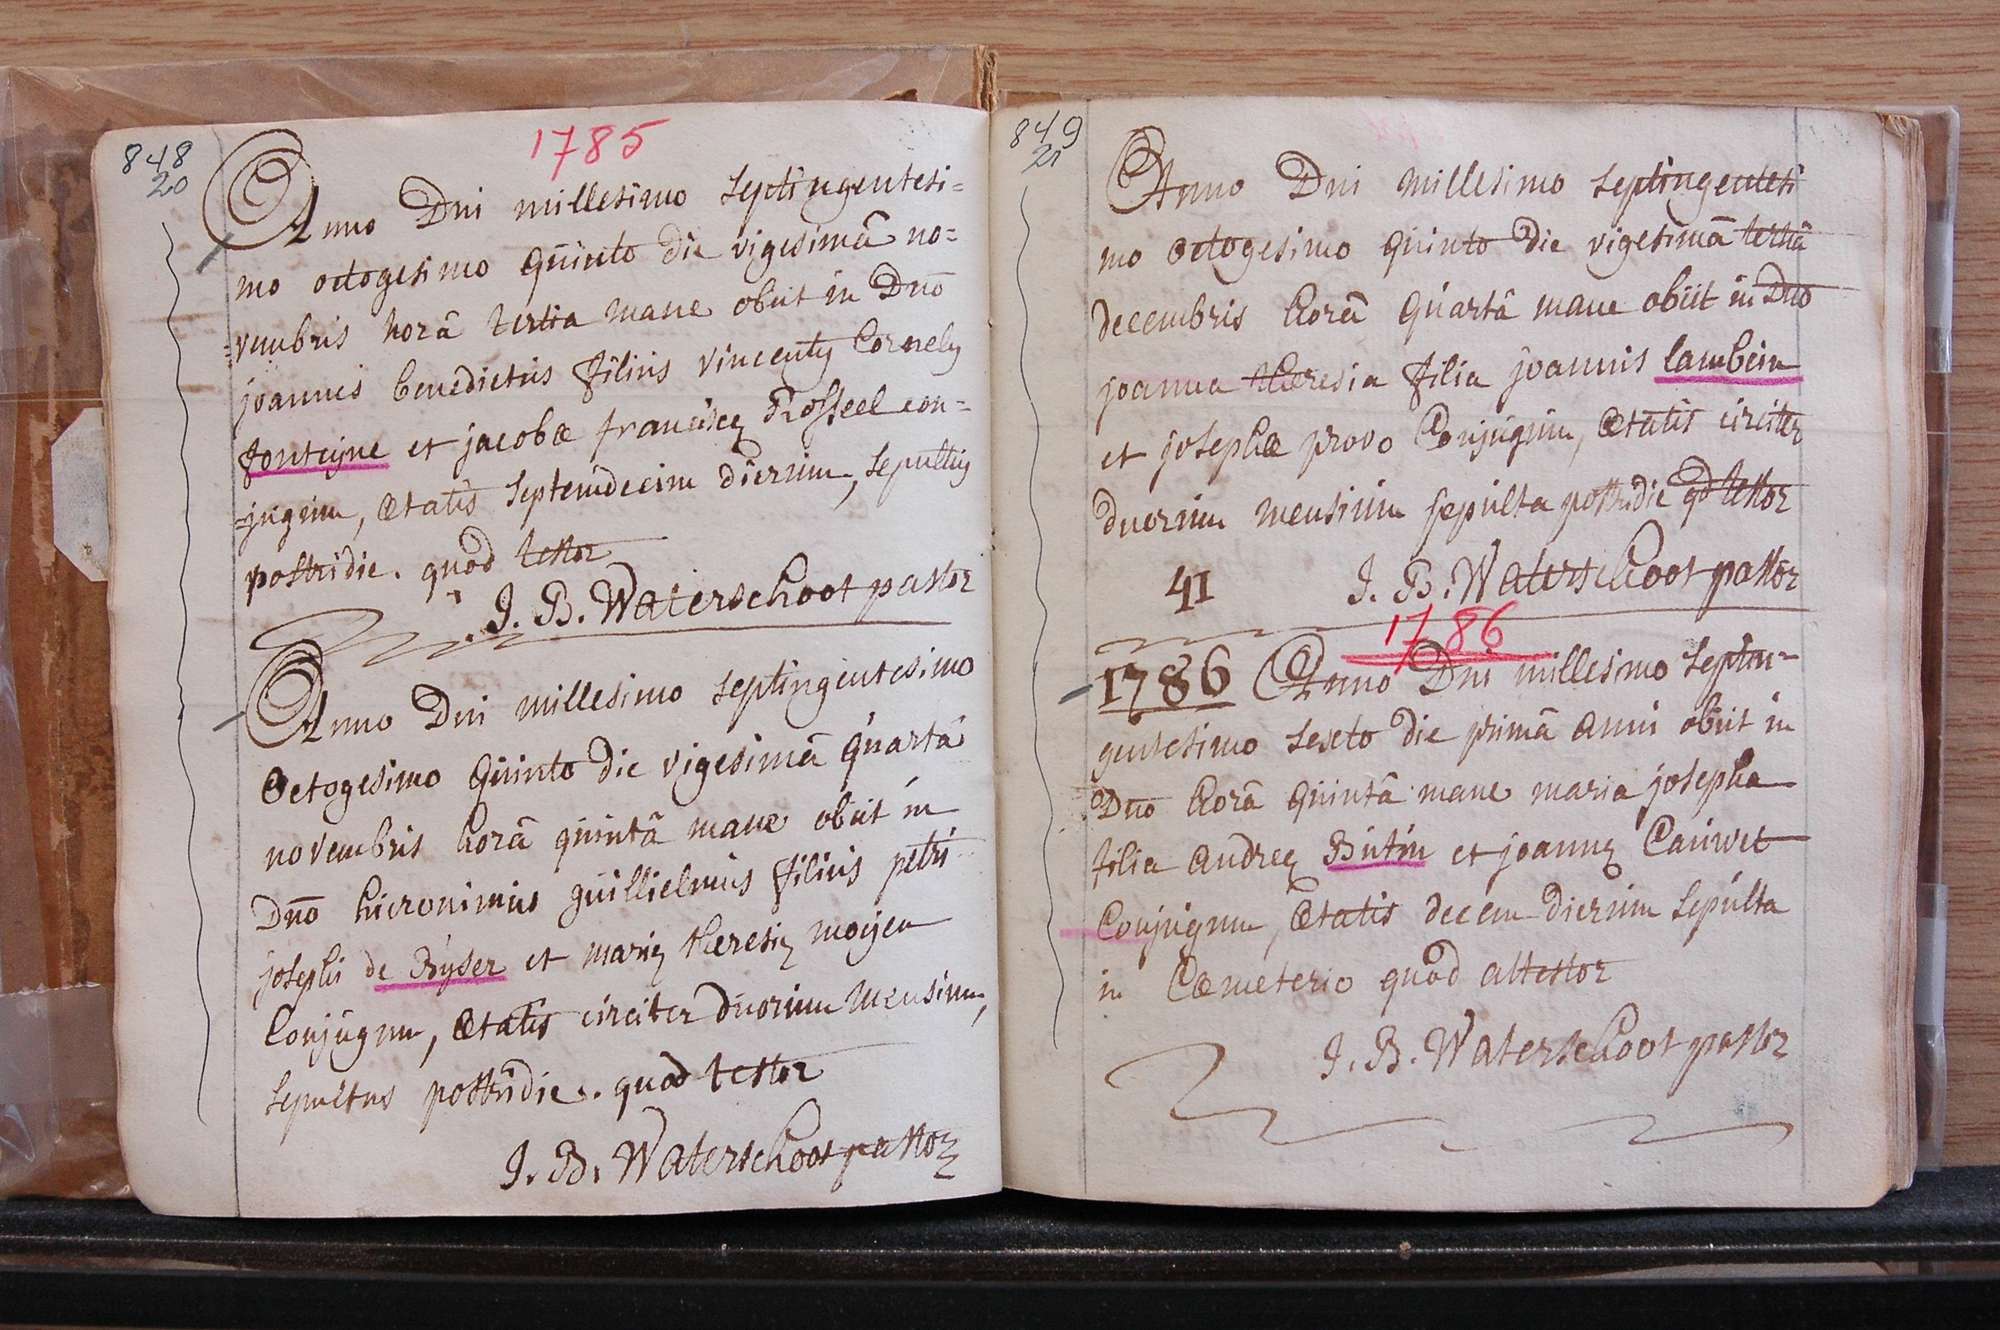 848
20
1785
Anno Dni millesimo septingentesi=
mo octogesimo quinto die vigesimâ no=
=vembris horâ tertia mane obiit in Dno
joannes benedictus filius vincentij Cornelij
fonteijne et jacobæ franciscæ Rosseel con=
=jugum, ætatis septemdecim dierum, sepultus
postridie. quod testor
J. B. Waterschoot pastor
Anno Dni millesimo septingentesimo
octogesimo quinto die vigesimâ quartâ
novembris horâ quintâ mane obiit in
Dno hieronimus guillielmus filius petri
josephi de Ryser et mariæ theresiæ moijen
Conjugum, ætatis circiter duorum mensium,
sepultus postridie. quod testor
J. B. Waterschoot pastor
849
21
Anno Dni millesimo septingentesi
mo octogesimo quinto die vigesimâ tertiâ
decembris horâ quartâ mane obiit in Dno
joanna theresia filia joannis lambein
et josephæ provo Conjugum, ætatis circiter
duorum mensium sepulta postridie qd testor
41 J. B. Waterschoot pastor
1786
1786 Anno Dni millesimo septin=
gentesimo sexto die primâ anni obiit in
Dno horâ quintâ mane maria josepha
filia andreæ Butin et joannæ Cauwet
Conjugum, ætatis decem dierum sepulta
in Cæmeterio quod attestor
J. B. Waterschoot pastor